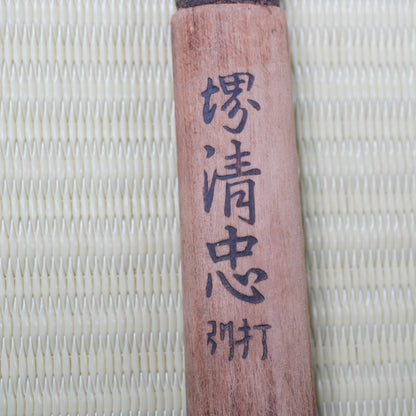 堺清忠
別打